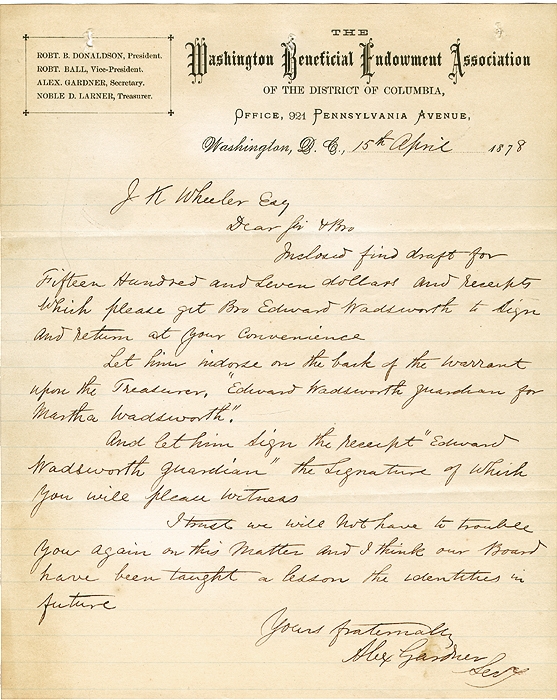 ROBT. B. DONALDSON, President.
ROBT. BALL, Vice-President.
ALEX. GARDNER, Secretary.
NOBLE D. LARNER, Treasurer.
THE
Washington Beneficial Endowment Association
OF THE DISTRICT OF COLUMBIA,
OFFICE, 921 PENNSYLVANIA AVENUE,
Washington, D. C., 15th April 1878
J K Wheeler Esq
Dear Sir & Bro
Inclosed find draft for
Fifteen Hundred and Seven dollars and receipts
which please get Bro Edward Wadsworth to Sign
and return at your convenience
Let him indorse on the back of the warrant
upon the Treasurer, "Edward Wadsworth guardian for
Martha Wadsworth".
And let him Sign the receipt "Edward
Wadsworth guardian" the Signature of which
you will please witness
I trust we will not have to trouble
you again on this matter and I think our Board
have been taught a lesson the identities in
future
Yours fraternally
Alex Gardner
Secy